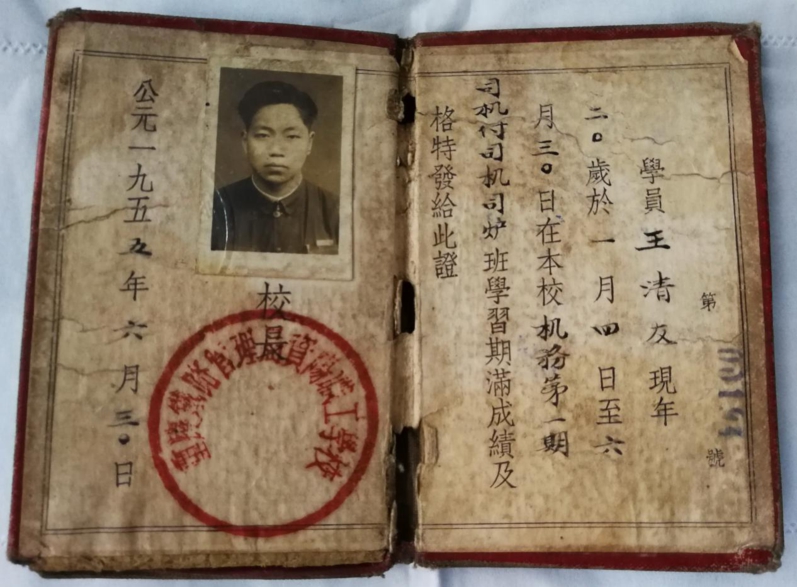 第 號
學員王清友現年
二〇歲於一月四日至六
月三〇日在本校机務第一期
司机付司机司炉班學習期滿成績及
格特發給此證
校長
重慶鐵路管理局資陽職工学校
公元一九五五年六月三〇日